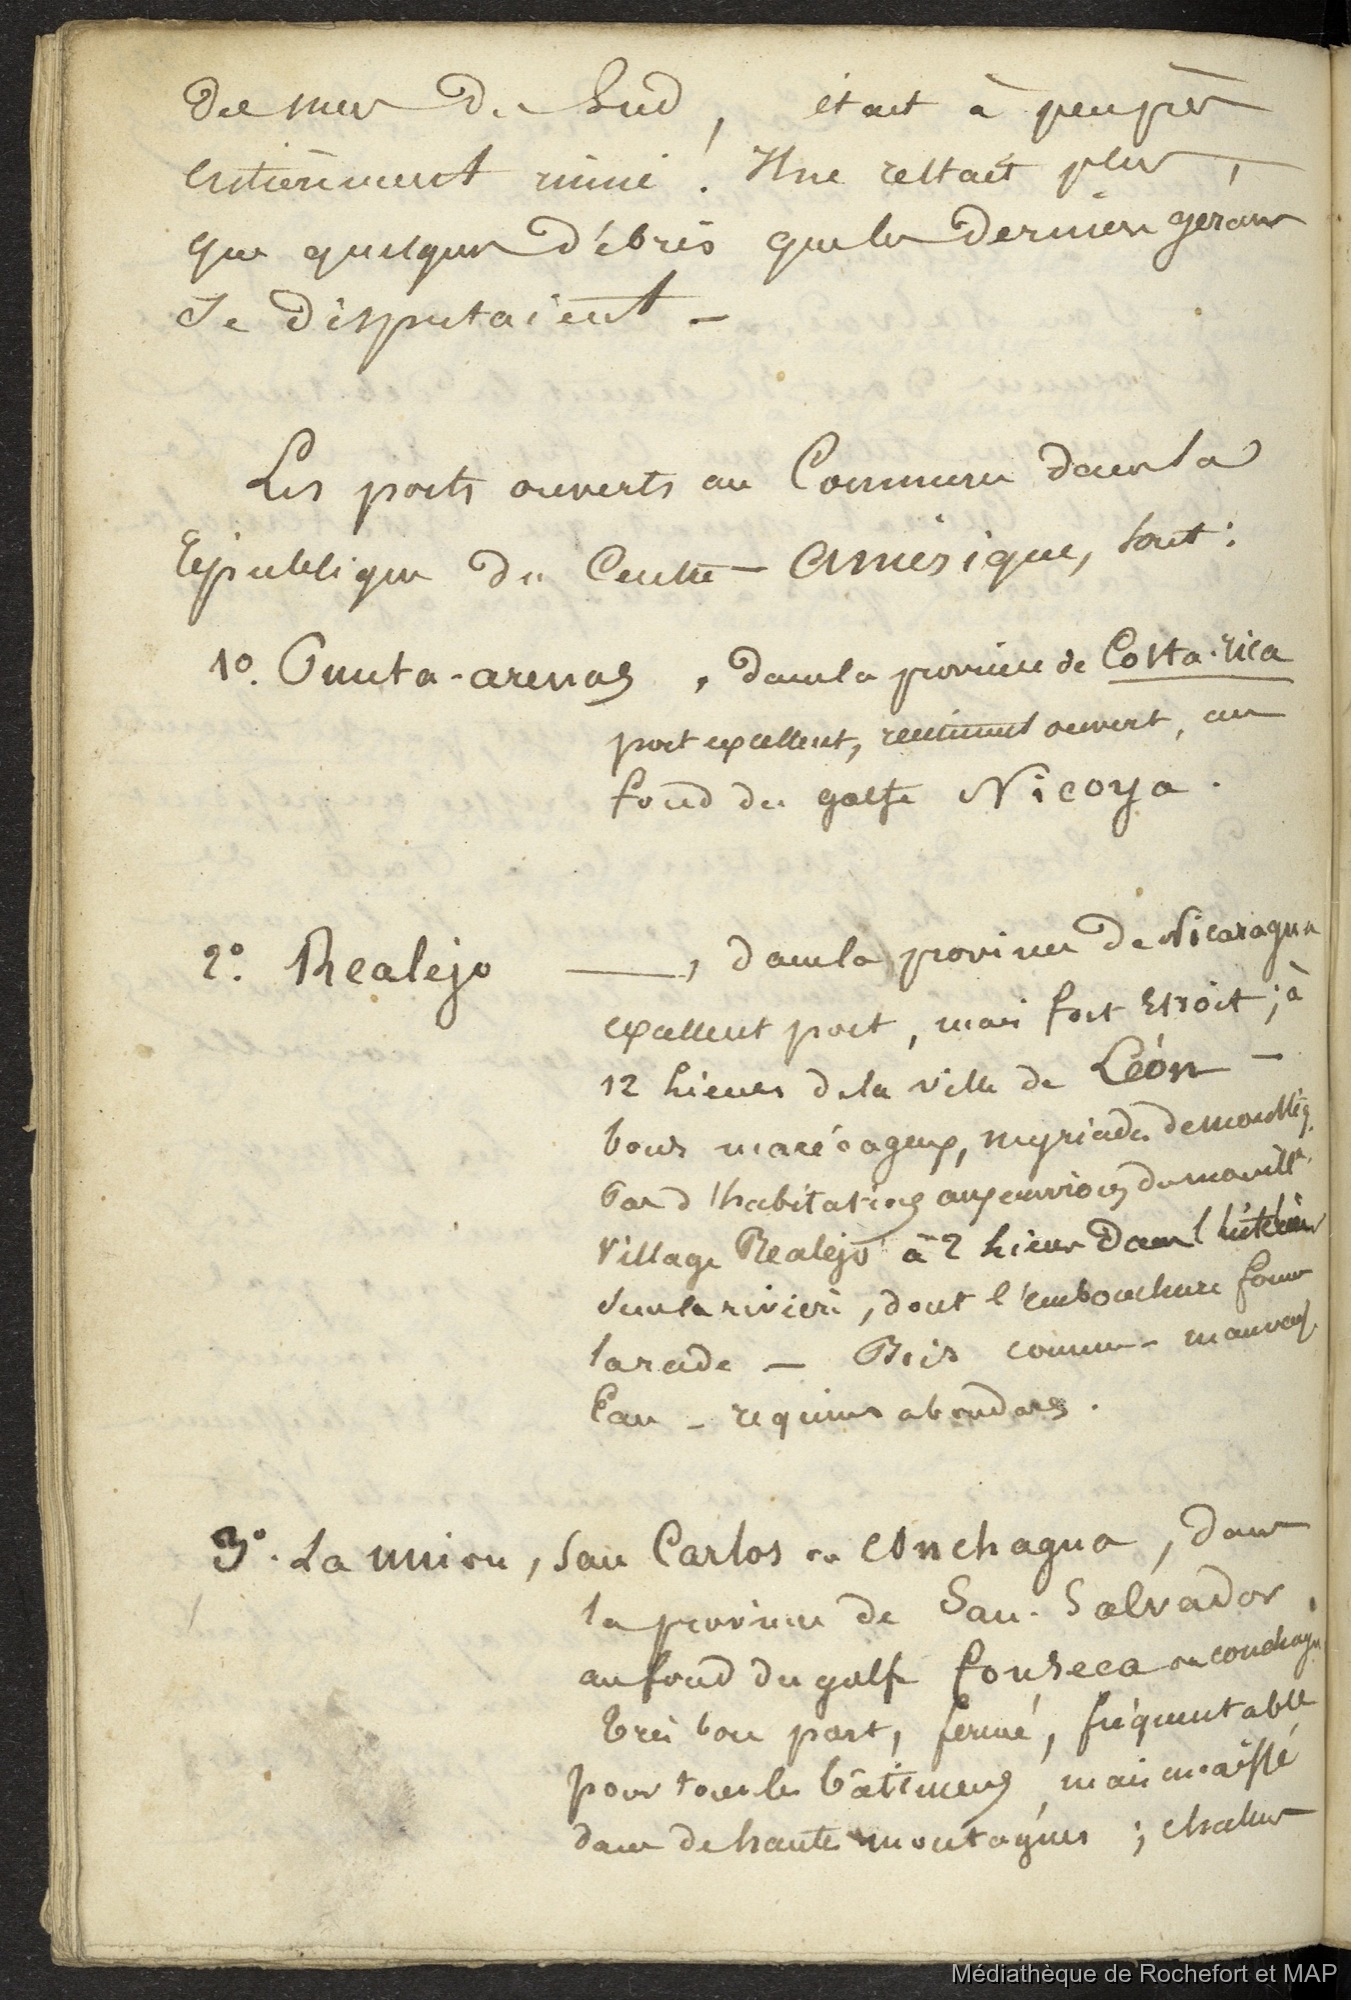 des mers du Sud, était à peu près
entièrement ruiné. Il ne restait plus,
que quelques débris que les derniers gérans
se disputaient -
Les ports ouverts au Commerce dans la
République du Centre-Amérique, sont :
1º. Punta-arenas, dans la province de Costa-rica
port excellent, récemment ouvert, au
fond du golfe Nicoya.
2º. Realejo —, dans la province de Nicaragua
excellent port, mais fort étroit ; à
12 lieues de la ville de Léon -
bois marécageux, myriades de moustiq.
Pas d'habitations aux environs du mouill.
Village Realejo à 2 lieues dans l'intérieur
sur la rivière, dont l'embouchure forme
la rade - Bois commun - mauvaise
Eau - requins abondans.
3º. La union, San Carlos ou Conchagua, dans
la province de San-Salvador,
au fond du golfe fonseca ou conchagua
très bon port, fermé, fréquentable
pour tous les bâtimens, mais encaissé
dans de hautes montagnes ; chaleur
Médiathèque de Rochefort et MAP